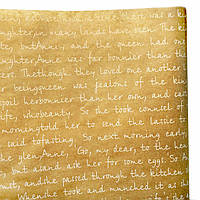 there was a kin
ughter, in many lands have been. The k
te, but Anne, and the queen had one
aughter, Anne was far bonnier than th
ters. Thethough they loved one another l
s. beingqueen was jealous of the king
spoil herbonnier than her own and cast
life, whobeauty. So she took counsel of
morningtold her to send the lassie t
said tofasting. So next morning early,
the glen, Anne, 'Go, my dear, to the he
but aisand ask her for some eggs. So A
nut, andshe passed through the kitchen
Whenshe took and munched it as sh